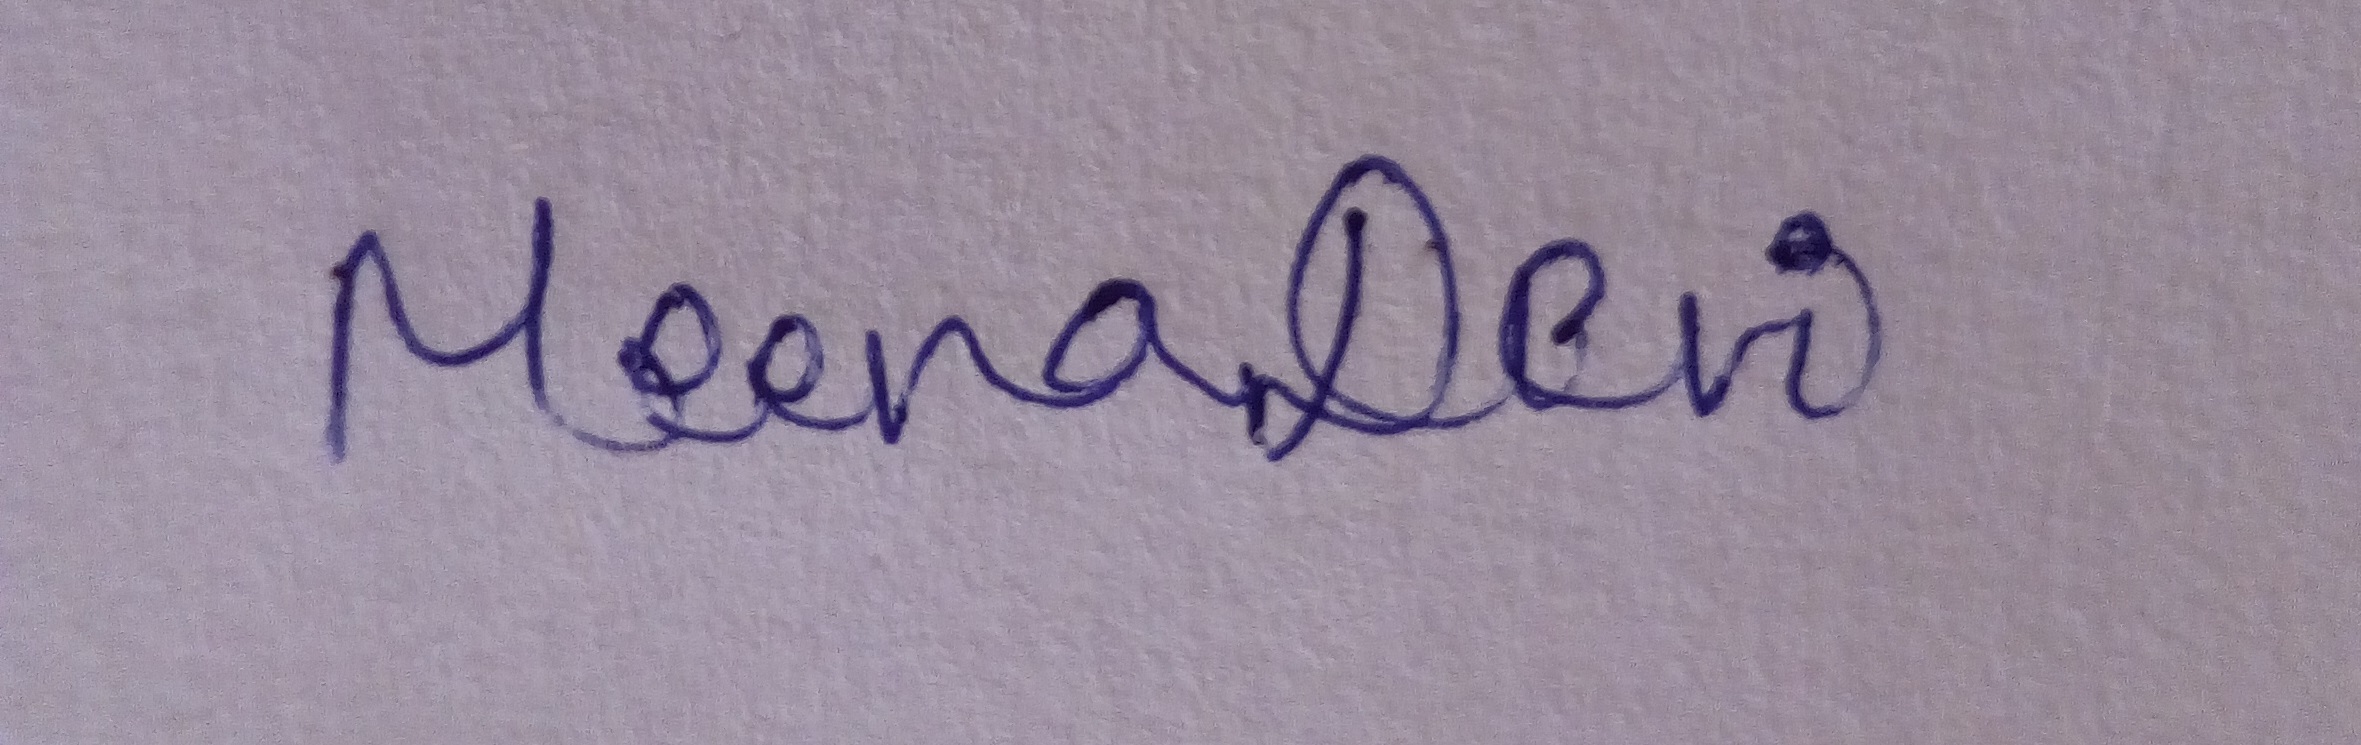 Meena Devi